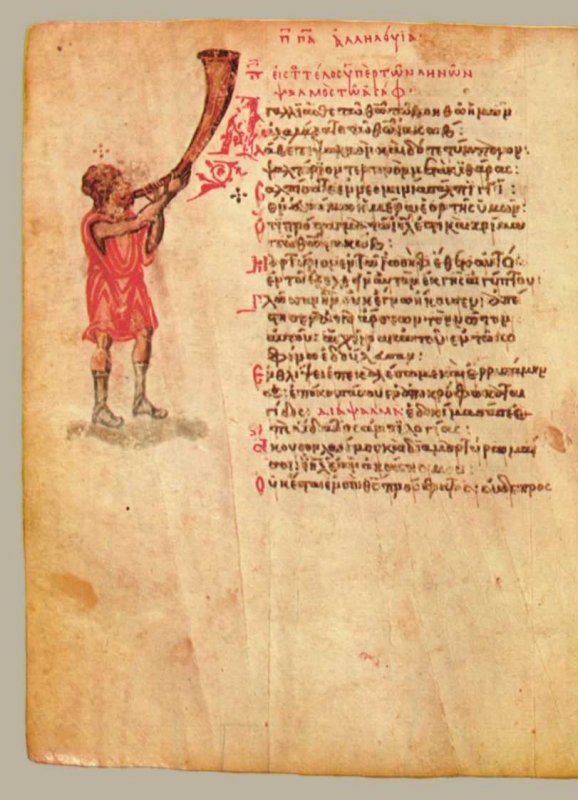 π πα ἀλληλούϊα·
π εἰς τ τέλος ὑπὲρ τῶν ληνῶν
ψαλμὸς τῶ ἀσάφ·
Ἀγαλλιᾶσθε τῶ θῶ τῶ βοηθῶ ἡμῶν
ἀλαλάξατε τῶ θῶ ἰακώβ:
Λάβετε ψαλμὸν καὶ δότε τύμπανον·
ψαλτήριον τερπνὸν μετὰ κιθάρας:
Σαλπίσατε ἐν νεομηνία σάλπιγγι:
ἡμέρα ἑορτῆς ὑμῶν:
Ὅτι πρόσταγμα τῶ ιηλ ἐστὶ καὶ κρίμα
τῶ θῶ ἰακώβ:
Μαρτύριον ἐν τῶ ἰωσὴφ ἔθετο αὐτὸ
ἐν τῶ ἐξελθεῖν αὐτὸν ἐκ γῆς αἰγύπτου:
Γλῶσσαν ἣν οὐκ ἔγνω ἤκουσεν: ἀπέ
στησεν ἀπὸ ἄρσεων τὸν νῶτον
αὐτοῦ: αἱ χεῖρες αὐτοῦ ἐν τῶ κο
φίνω ἐδούλευσαν:
Ἐν θλίψει ἐπεκαλέσω με καὶ ἐρρυσάμην
σε: ἐπήκουσά σου ἐν ἀποκρύφω καται
γίδος: διάψαλμα ἐδοκίμασά σε
ἐπὶ ὕδατος ἀντιλογίας:
Ἄκουσον λαός μου καὶ διαμαρτύρομαί
σοι: ιηλ ἐὰν ἀκούσης μου:
Οὐκ ἔσται ἐν σοὶ θς πρόσφατος: οὐδὲ προσ